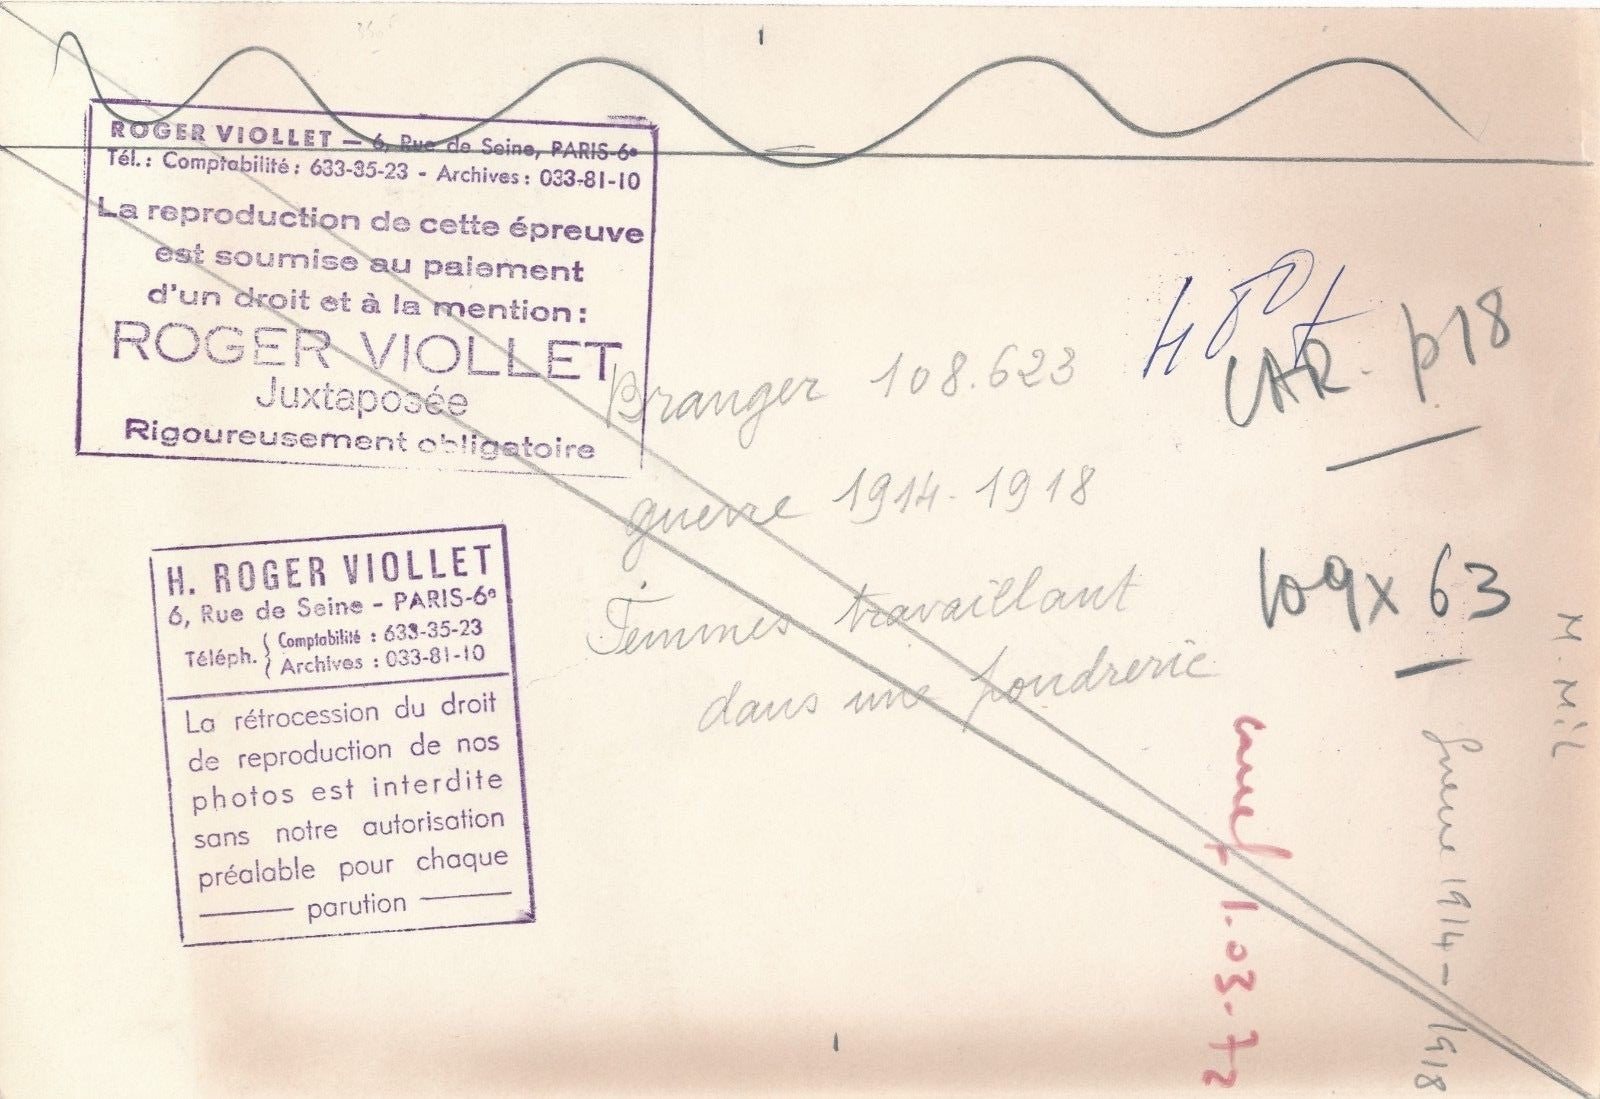 ROGER VIOLLET — 6, Rue de Seine, PARIS-6e
Tél.: Comptabilité: 633-35-23 - Archives: 033-81-10
La reproduction de cette épreuve
est soumise au paiement
d'un droit et à la mention:
ROGER VIOLLET
Juxtaposée
Rigoureusement obligatoire
H. ROGER VIOLLET
6, Rue de Seine - PARIS-6e
Téléph. { Comptabilité : 633-35-23
Archives : 033-81-10
La rétrocession du droit
de reproduction de nos
photos est interdite
sans notre autorisation
préalable pour chaque
parution
Branger 108.623
guerre 1914-1918
Femmes travaillant
dans une fondrerie
CAR. p18
109x 63
1.03-72
Guerre 1914-1918
M. Mil